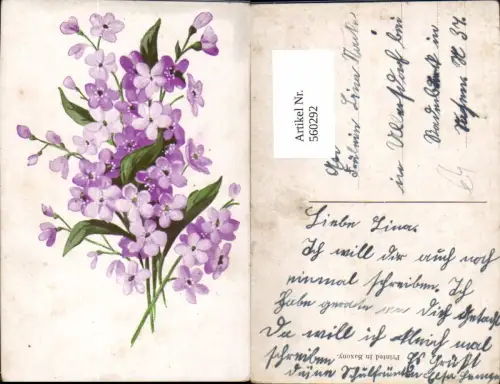 Artikel Nr.
560292
Fräulein Lina
in bei
in
Sachen N 37.
Liebe Lina.
Ich will dir auch noch
einmal schreiben. Ich
habe gerade an Dich gedacht
Da will ich gleich mal
schreiben Es Grüßt
deine Schulfreundin Elsa
Printed in Saxony.